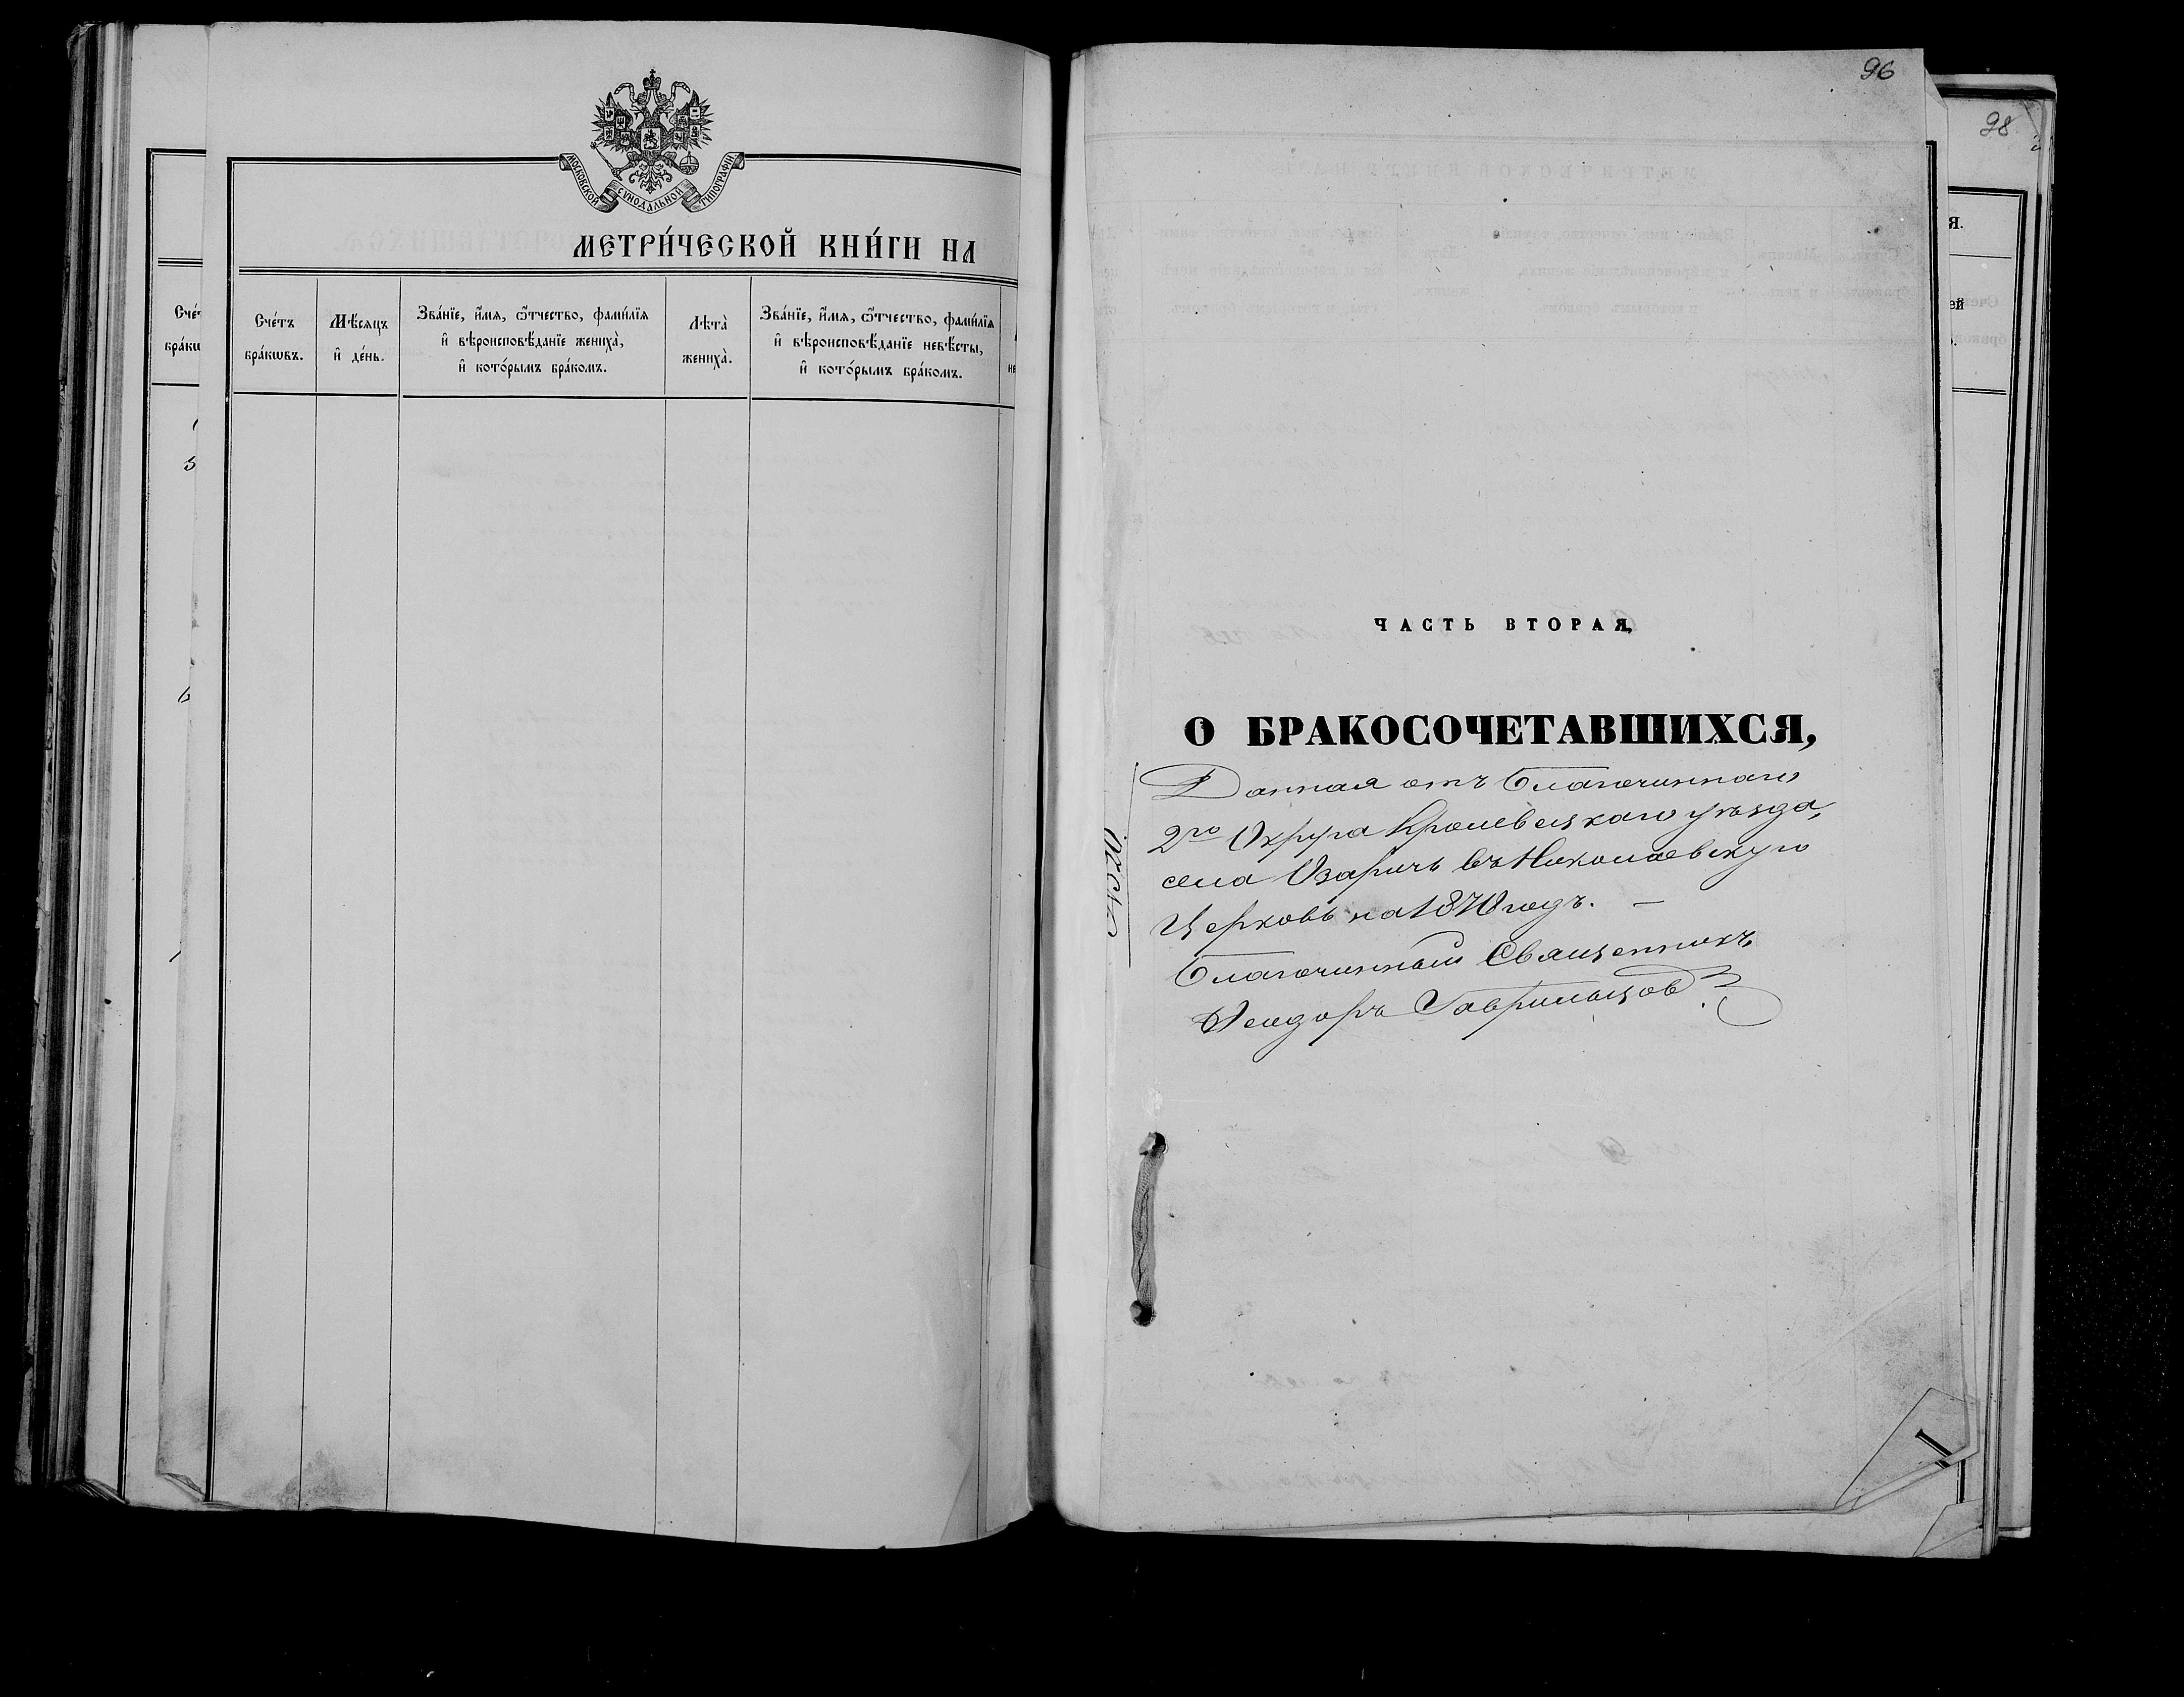 МОСКОВСКОЙ СУНОДАЛЬНОЙ ТИПОГРАФІИ
МЕТРИ́ЧЕСКОЙ КНИ́ГИ НА
Сче́тъ
бра́кѡвъ.
Мѣ́сяцъ
и҆ де́нь.
Зва́нїе, и҆́мѧ, ѻ҆́тчество, фами́лїѧ
и҆ вѣроисповѣ́данїе жениха̀,
и҆ кото́рымъ бра́комъ.
Лѣта̀
жениха̀.
Зва́нїе, и҆́мѧ, ѻ҆́тчество, фами́лїѧ
и҆ вѣроисповѣ́данїе невѣ́сты,
и҆ кото́рымъ бра́комъ.
96
98
ЧАСТЬ ВТОРАЯ,
О БРАКОСОЧЕТАВШИХСЯ,
Данная отъ Благочиннаго
2го Округа Кролевецкаго уѣзда,
села Озаричъ въ Николаевскую
Церковь на 1878 годъ. —
Благочинный Священникъ
Ѳеодоръ Гаврильцов
№ 520.